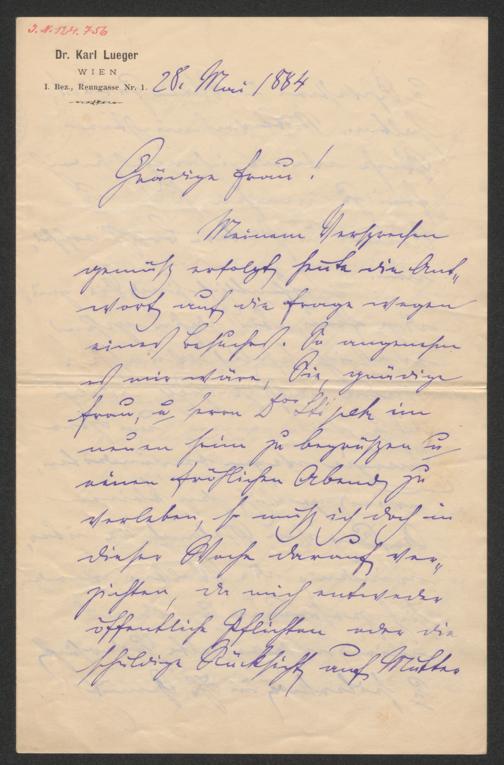 J.N. 124.756
Dr. Karl Lueger
WIEN
I. Bez., Renngasse Nr. 1.
28. Mai 1884
Gnädige Frau!
Meinem Versprechen
gemäß erfolgt heute die Ant-
wort auf die Frage wegen
eines Besuches. So angenehm
es mir wäre, Sie, gnädige
Frau, u Herrn Dor im
neuen Heim zu begrüßen u
einen fröhlichen Abend zu
verleben, so muß ich doch in
dieser Woche darauf ver-
zichten, da mich entweder
öffentliche Pflichten oder die
schuldige Rücksicht auf Mutter